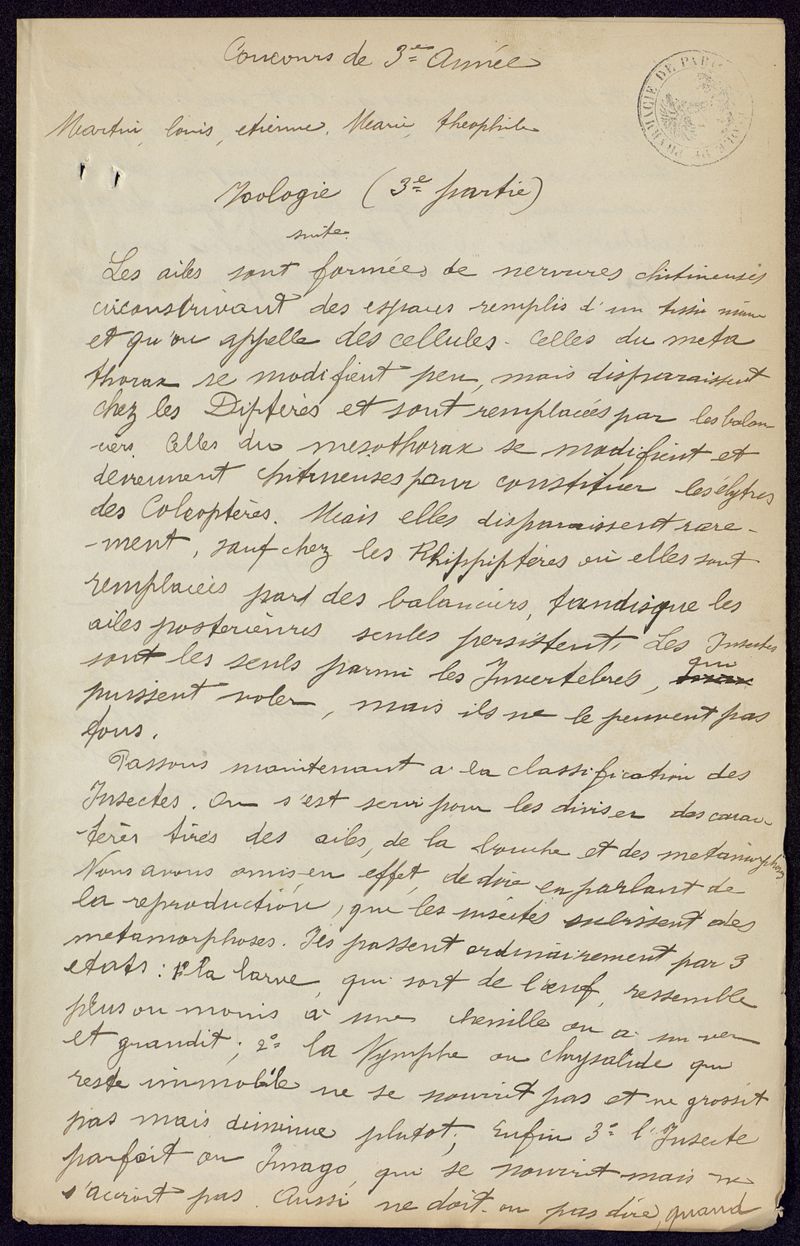 Concours de 3e Année
ECOLE DE PHARMACIE DE PARIS
Martin, louis, etienne, Marie, theophile
Zoologie (3e partie)
suite.
Les ailes sont formées de nervures chitineuses
circonscrivant des espaces remplis d'un tissu mince
et qu'on appelle des cellules. Celles du meta
thorax se modifient peu, mais disparaissent
chez les Diptères et sont remplacées par les balan
ciers. Celles du mesothorax se modifient et
deviennent chitineuses pour constituer les élytres
des Coleoptères. Mais elles disparaissent rare-
-ment, sauf chez les Rhippiptères où elles sont
remplacées par des balanciers, tandis que les
ailes posterieures seules persistent. Les Insectes
sont les seuls parmi les Invertebrés, qui
puissent voler, mais ils ne le peuvent pas
tous.
Passons maintenant a la classification des
Insectes. On s'est servi pour les diviser des carac-
-tères tirés des ailes, de la bouche et des metamorphoses
Nous avons omis en effet, de dire en parlant de
la reproduction, que les insectes subissent des
metamorphoses. Ils passent ordinairement par 3
etats: 1o la larve, qui sort de l'œuf, ressemble
plus ou moins à une chenille ou a un ver
et grandit; 2o la Nymphe ou chrysalide qui
reste immobile ne se nourrit pas et ne grossit
pas mais diminue plutot; Enfin 3o l'Insecte
parfait ou Imago, qui se nourrit mais ne
s'accroit pas. Aussi ne doit-on pas dire, quand